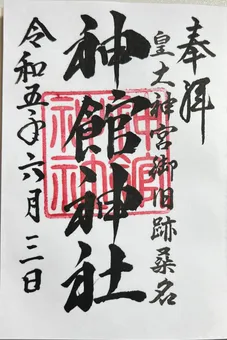 奉拝
皇大神宮御旧跡桑名
神館神社
令和五年六月三日
神館神社